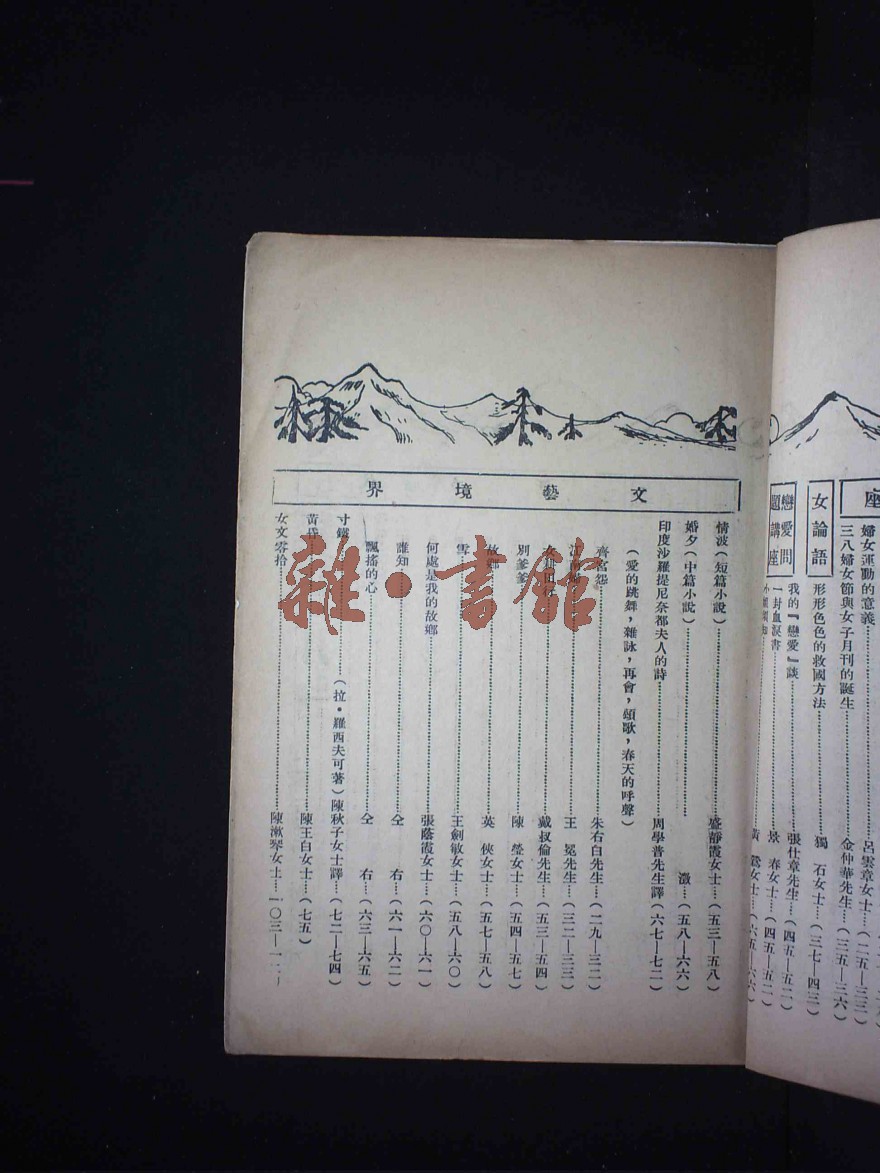 座
婦女運動的意義……呂雲章女士……(二五—三三)
三八婦女節與女子月刊的誕生……金仲華先生……(三五—三六)
女論語
形形色色的救國方法……獨 石女士……(三七—四三)
戀愛問題講座
我的『戀愛』談……張仕章先生……(四五—五二)
一封血淚書……景 春女士……(四五—五二)
黃 鶯女士……(六五—六六)
文藝境界
情波(短篇小說)……盛靜霞女士……(五三—五八)
婚夕(中篇小說)……澂……(五八—六六)
印度沙羅提尼奈都夫人的詩……周學普先生譯(六七—七二)
(愛的跳舞,雜詠,再會,頌歌,春天的呼聲)
齊宮怨……朱右白先生……(二九—三二)
王 冕先生……(三二—三三)
戴叔倫先生……(五三—五四)
別爹爹……陳 瑩女士……(五四—五七)
故鄉……英 俠女士……(五七—五八)
雪……王劍敏女士……(五八—六〇)
何處是我的故鄉……張蔭霞女士……(六〇—六一)
誰知……仝 右……(六一—六二)
飄搖的心……仝 右……(六三—六五)
寸鐵……(拉·羅西夫可著)陳秋子女士譯……(七二—七四)
黃昏……陳王白女士……(七五)
女文零拾……陳漱琴女士……一〇三—
雜·書館